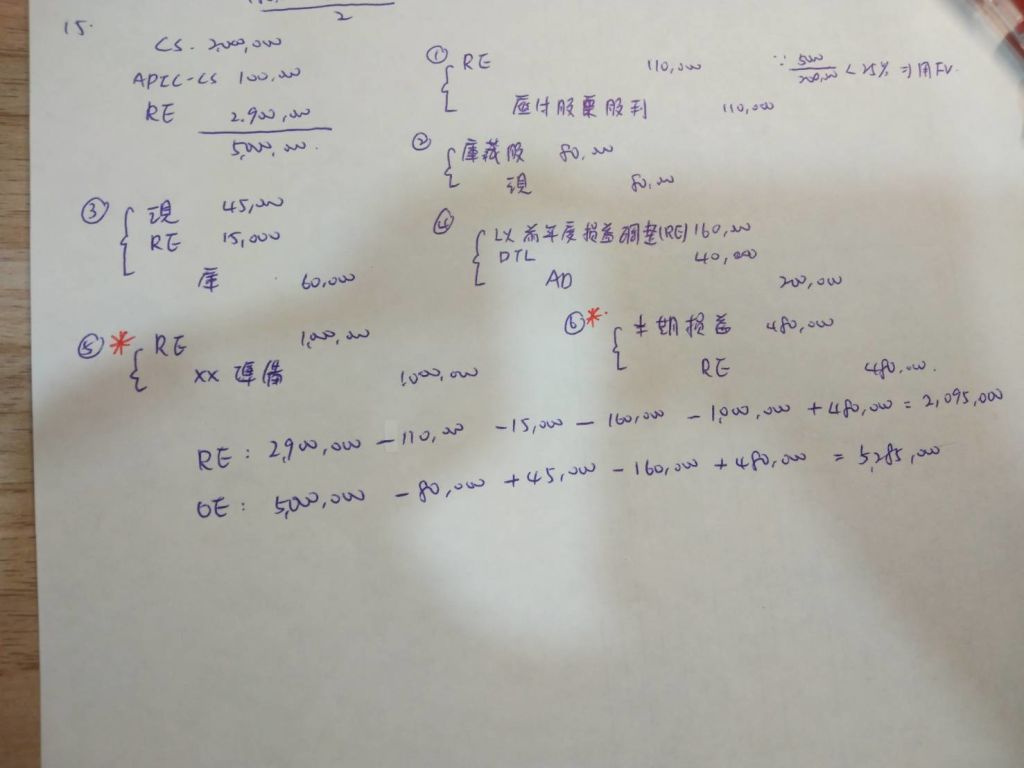 2
15.
CS. 2,000,000
APIC-CS 100,000
RE 2,900,000
5,000,000.
① RE 110,000 ∵ 5000/200,000 < 25% ⇒用FV.
應付股票股利 110,000
② 庫藏股 80,000
現 80,000
③ 現 45,000
RE 15,000
庫 60,000
④ LX 前年度損益調整(RE) 160,000
DTL 40,000
AD 200,000
⑤* RE 1,000,000
XX 準備 1,000,000
⑥* 本期損益 480,000
RE 480,000.
RE: 2,900,000 - 110,000 - 15,000 - 160,000 - 1,000,000 + 480,000 = 2,095,000
OE: 5,000,000 - 80,000 + 45,000 - 160,000 + 480,000 = 5,285,000